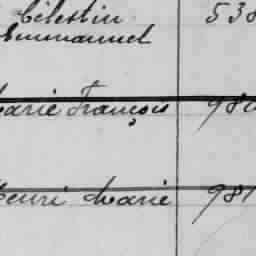 Célestin 538
Emmanuel
Marie François 980
Henri Marie 981